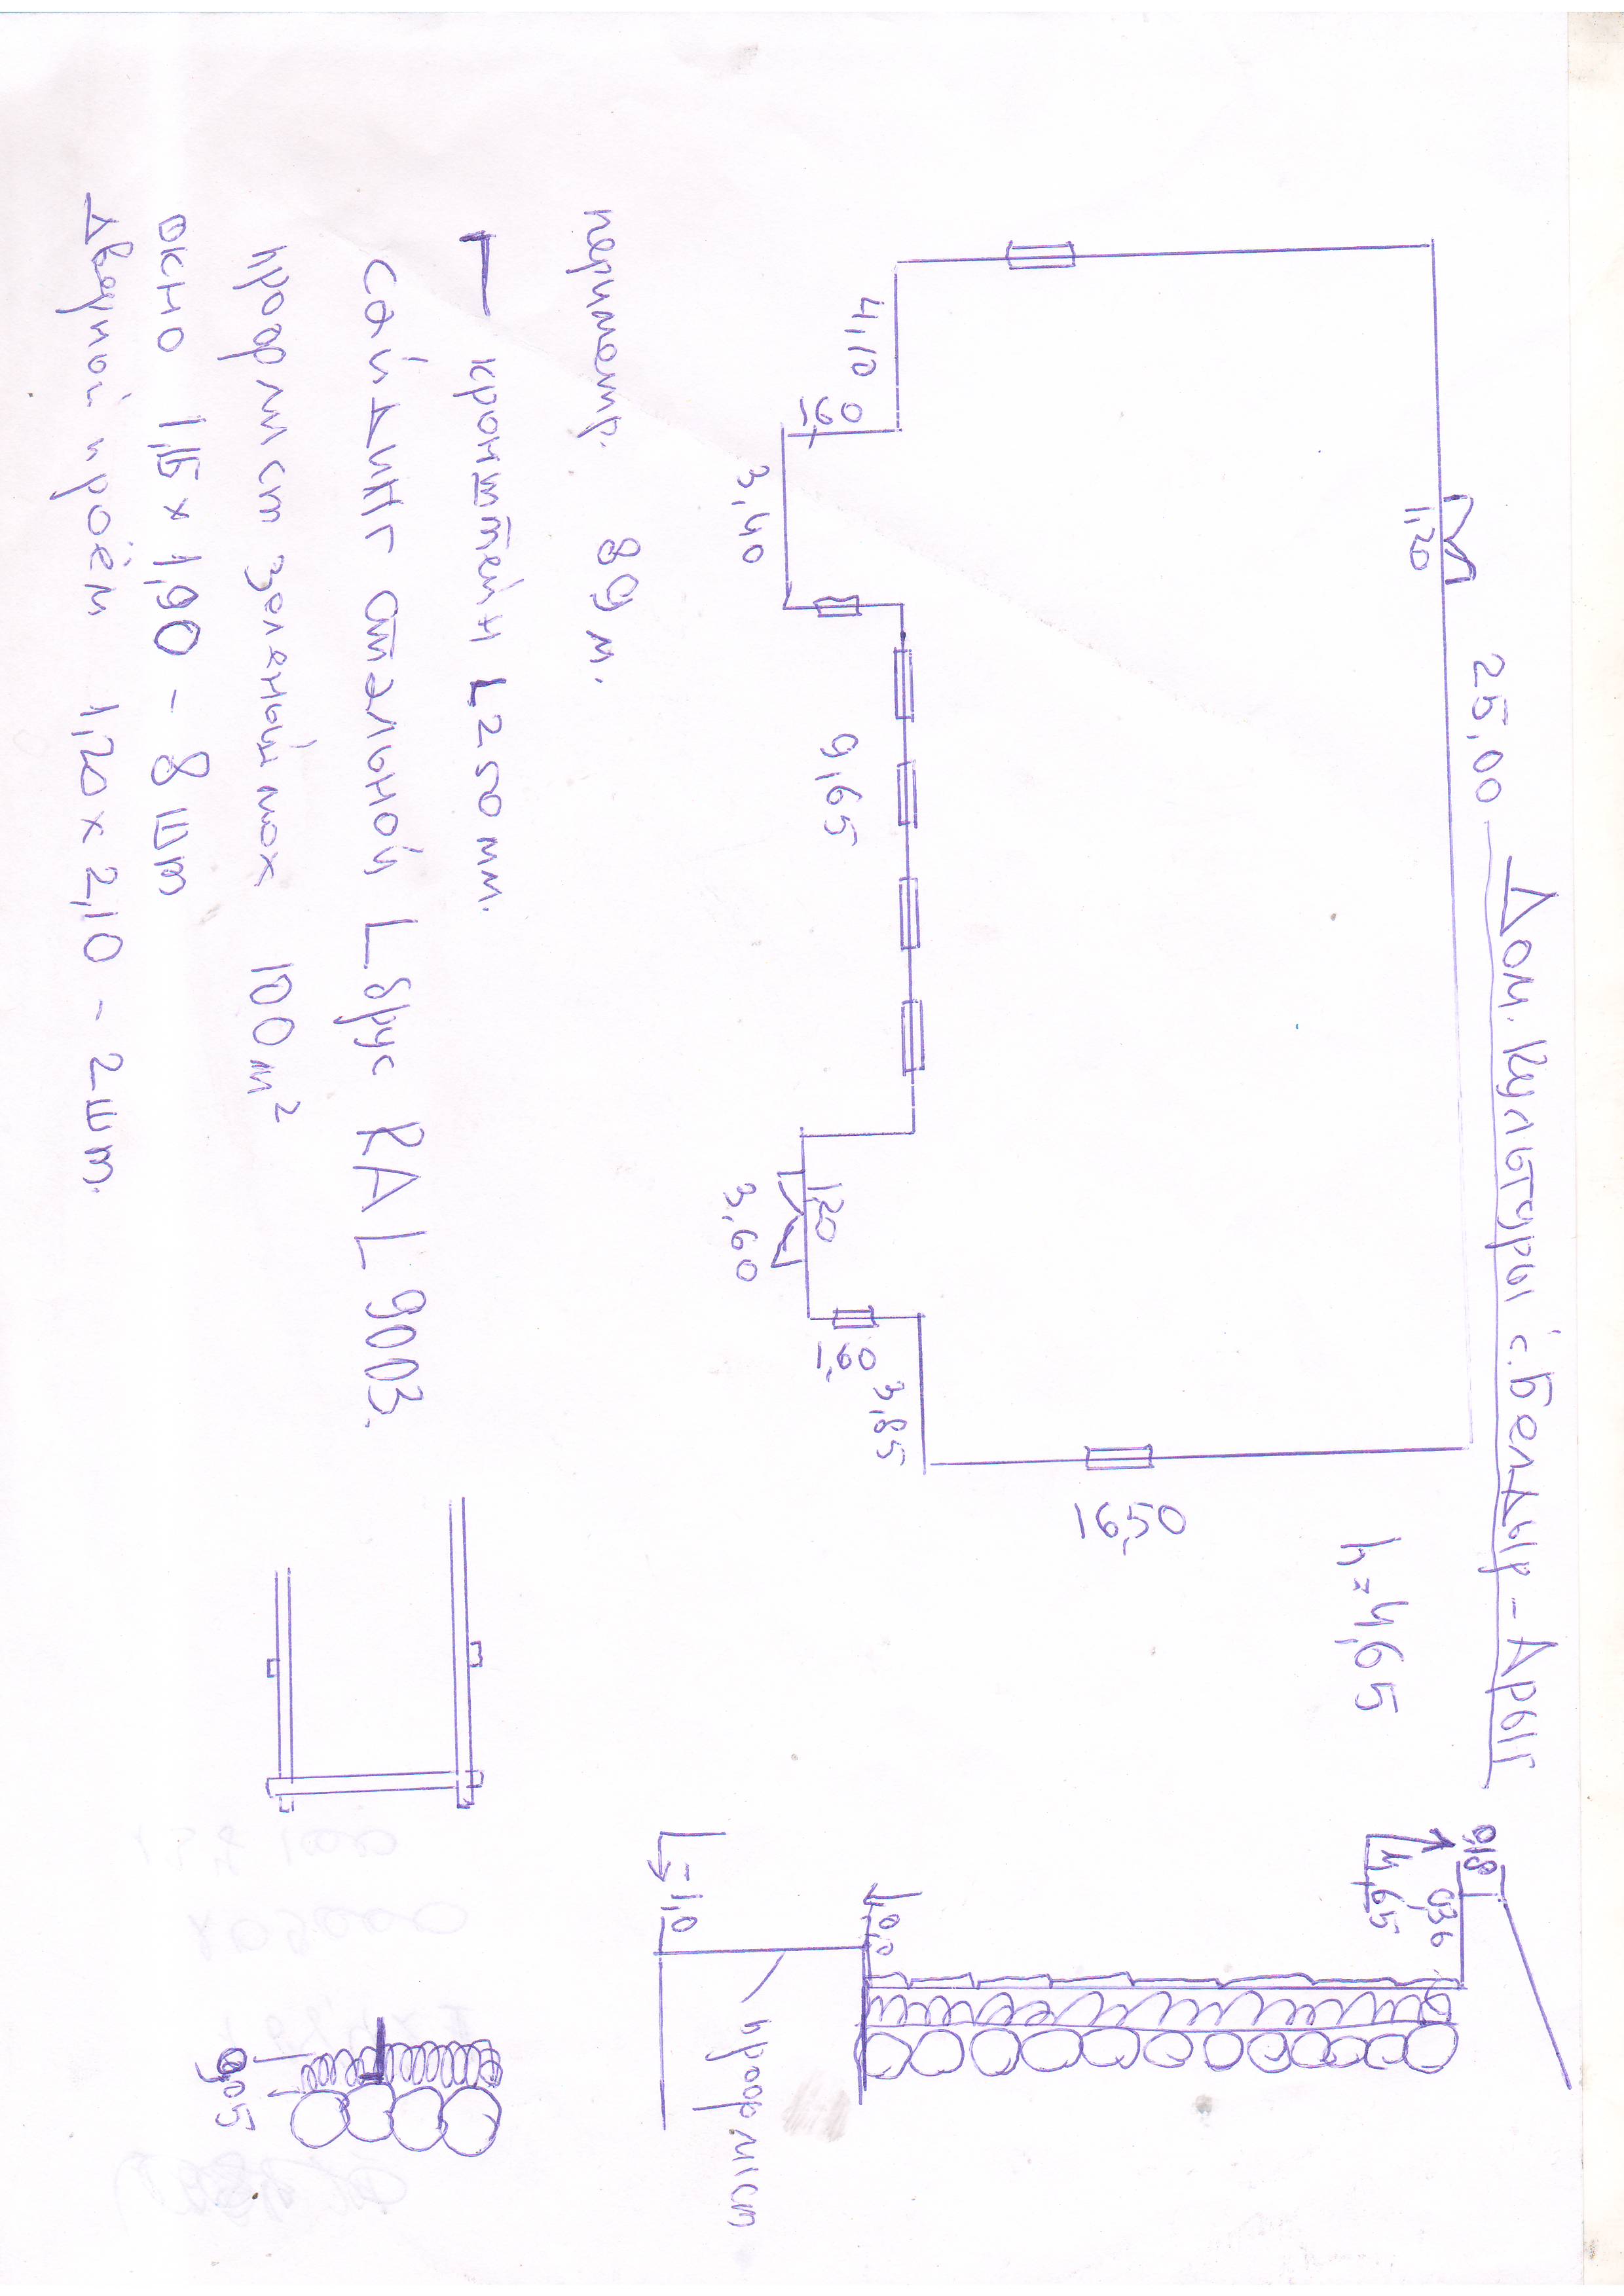 Дом. Культуры с. Белдыр-Арыг
25,00
h=4,65
1,20
16,50
4,10
1,60
3,40
9,65
1,20
3,60
1,60
3,85
0,18
0,36
4,65
0,0
-1,0
профлист
периметр. 89 м.
кронштейн L250мм.
сайдинг стальной Lбрус RAL 9003.
профлист зеленый мох 100м²
окно 1,15 x 1,90 - 8 шт
Дверной проём 1,20 x 2,10 - 2шт.
0,05